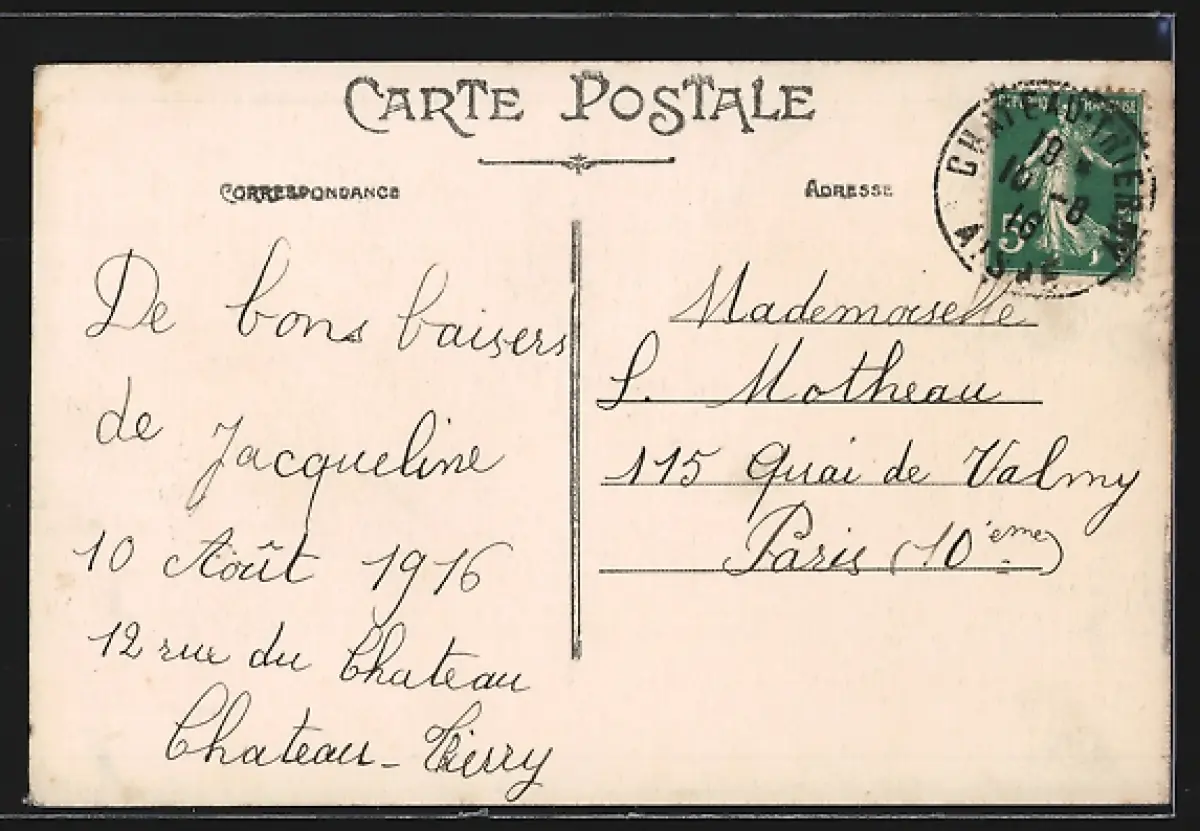 CARTE POSTALE
CORRESPONDANCE
ADRESSE
De bons baisers
de Jacqueline
10 Août 1916
12 rue du Chateau
Chateau-Tierry
Mademoiselle
S. Motheau
115 Quai de Valmy
Paris (10ème)
CHATEAU-THIERRY
AISNE
5